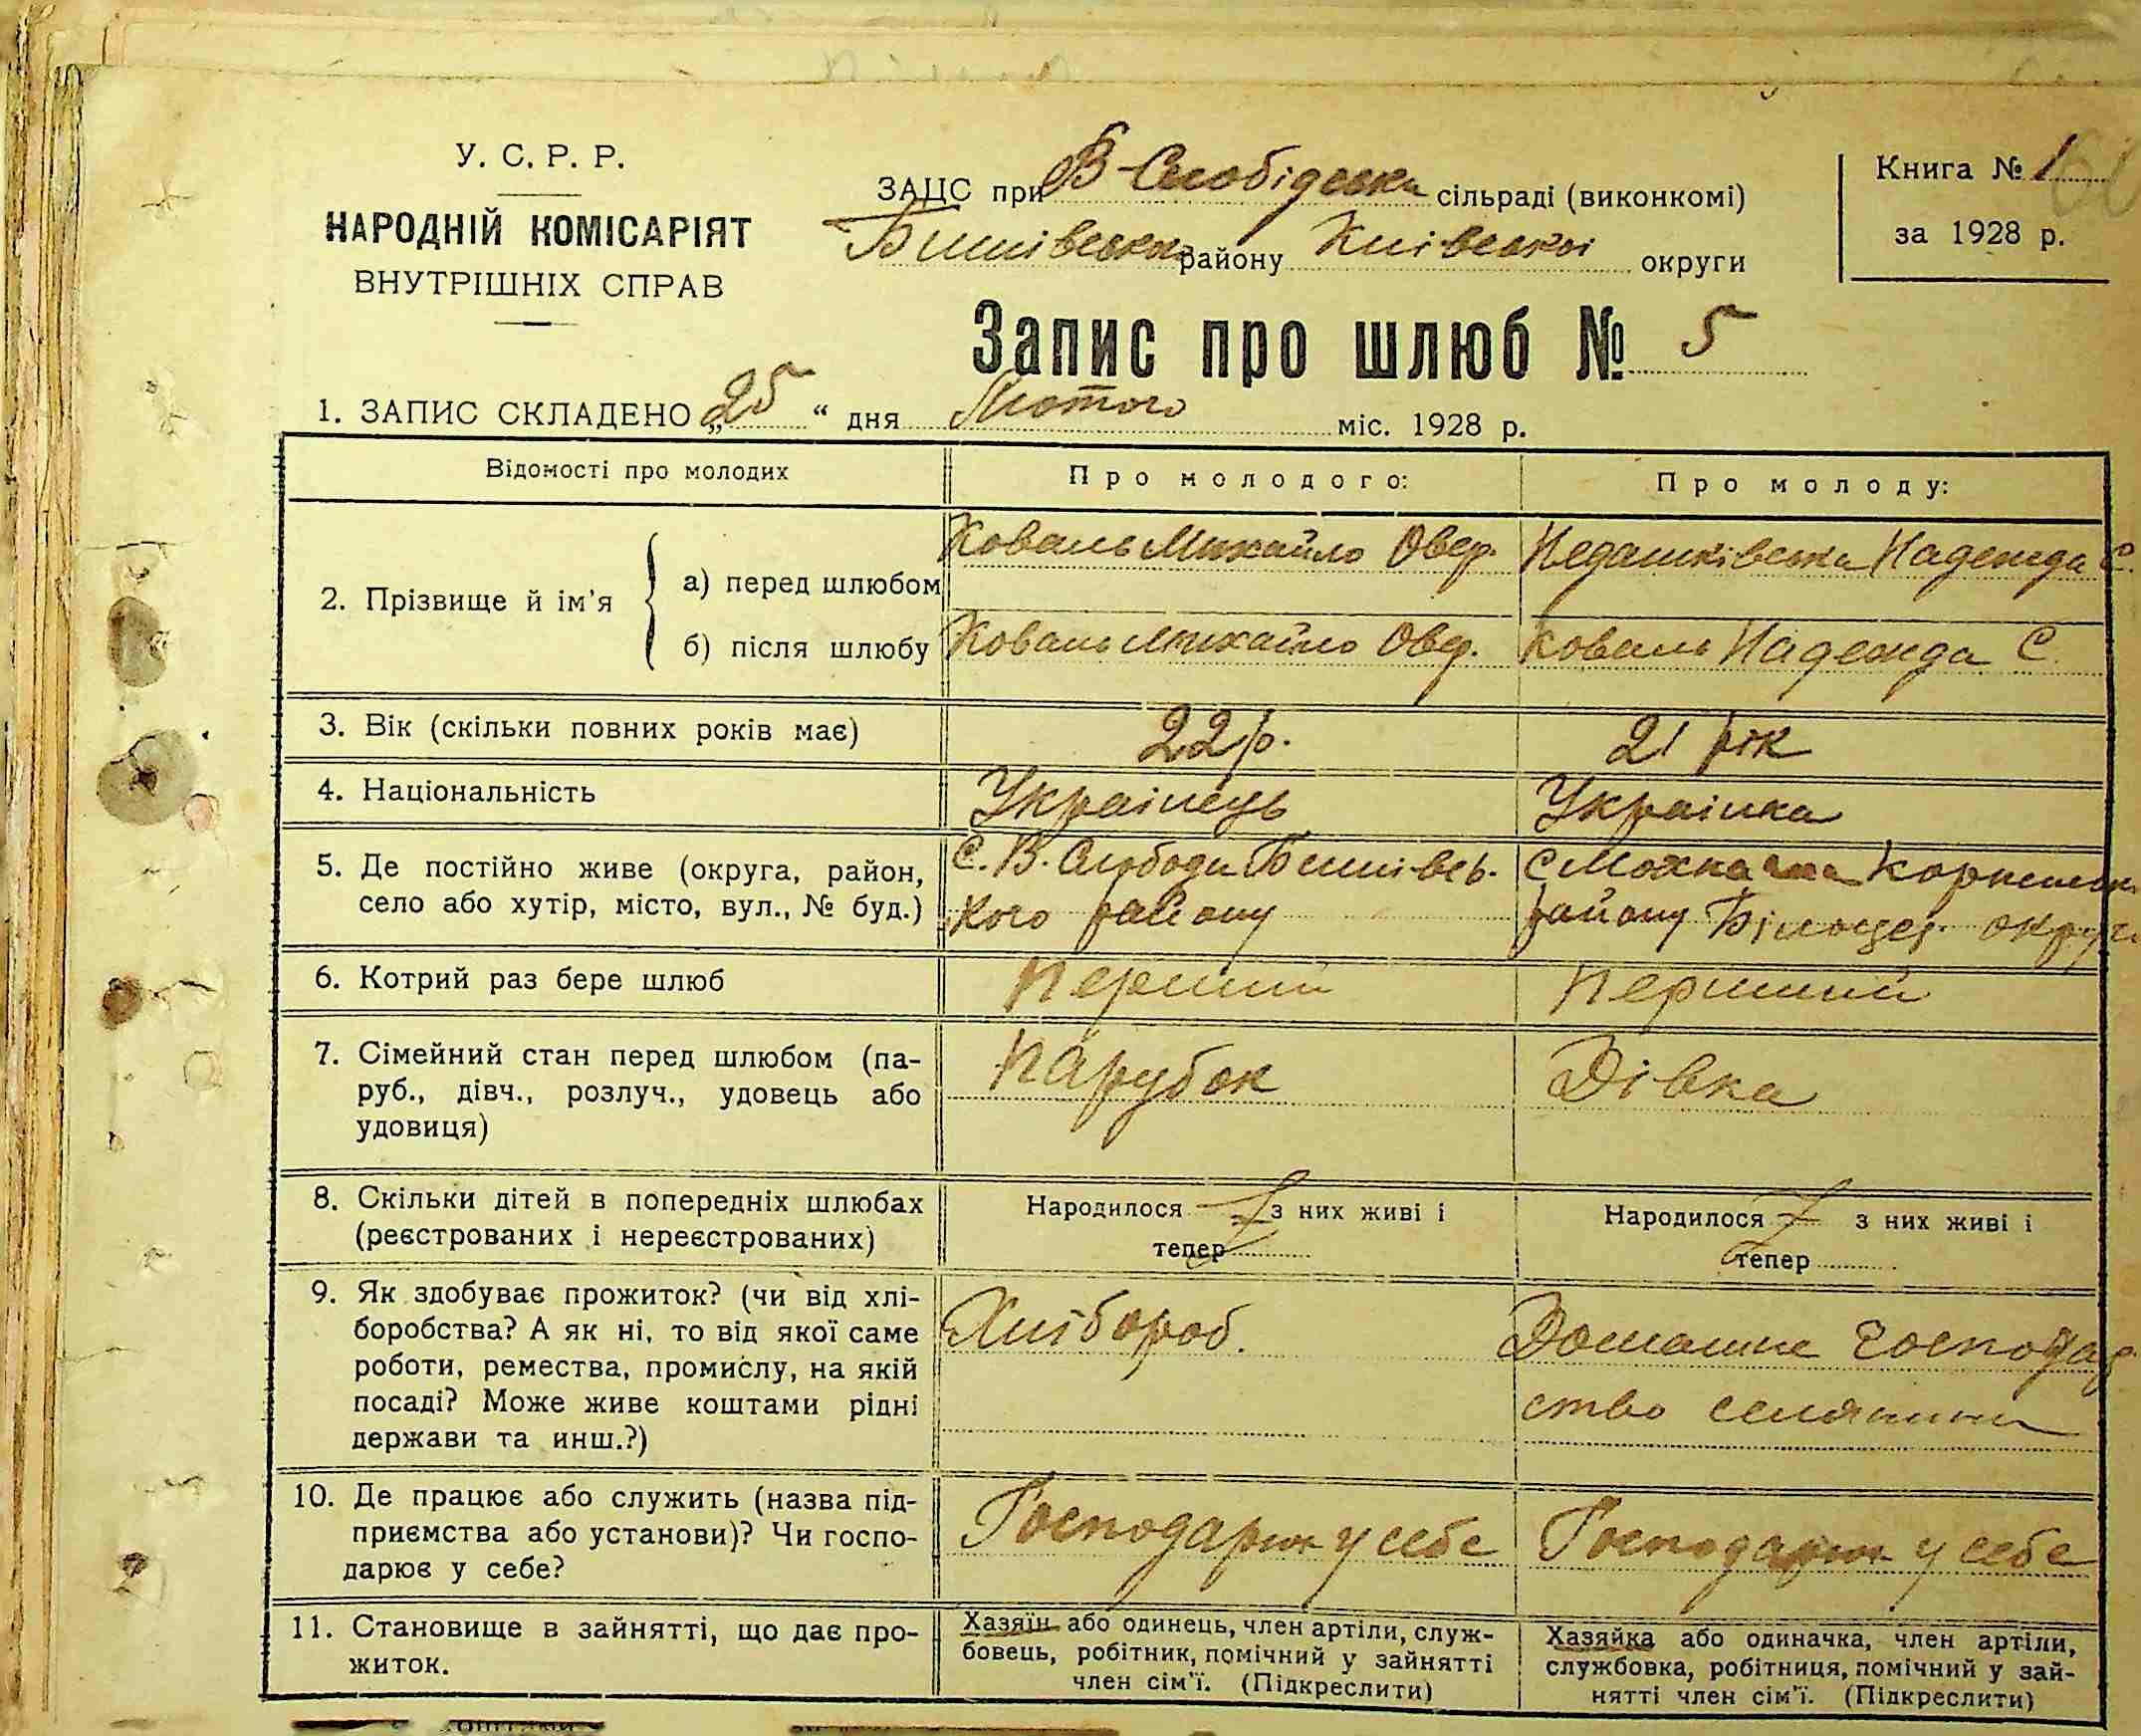 У. С. Р. Р.
НАРОДНІЙ КОМІСАРІЯТ
ВНУТРІШНІХ СПРАВ
ЗАЦС при В-Слобідська сільраді (виконкомі)
Бишівська району Київської округи
Книга № 1
за 1928 р.
Запис про шлюб № 5
1. ЗАПИС СКЛАДЕНО „25“ дня Лютого міс. 1928 р.
Відомості про молодих
Про молодого:
Про молоду:
2. Прізвище й ім'я
а) перед шлюбом
Коваль Михайло Овер.
Недашківська Надежда С.
б) після шлюбу
Коваль Михайло Овер.
Коваль Надежда С.
3. Вік (скільки повних років має)
22 р.
21 рік
4. Національність
Українець
Українка
5. Де постійно живе (округа, район,
село або хутір, місто, вул., № буд.)
С. В. Слободи Бишівсь-
кого району
С Мохначка
району Білоцер. округи
6. Котрий раз бере шлюб
Перший
Перший
7. Сімейний стан перед шлюбом (па-
руб., дівч., розлуч., удовець або
удовиця)
Парубок
Дівка
8. Скільки дітей в попередніх шлюбах
(реєстрованих і нереєстрованих)
Народилося з них живі і
тепер
Народилося з них живі і
тепер
9. Як здобуває прожиток? (чи від хлі-
боробства? А як ні, то від якої саме
роботи, ремества, промислу, на якій
посаді? Може живе коштами рідні
держави та инш.?)
Хлібороб.
Домашне господар
ство селянини
10. Де працює або служить (назва під-
приємства або установи)? Чи госпо-
дарює у себе?
Господарює у себе
Господарює у себе
11. Становище в зайнятті, що дає про-
житок.
Хазяїн або одинець, член артіли, служ-
бовець, робітник, помічний у зайнятті
член сім'ї. (Підкреслити)
Хазяйка або одиначка, член артіли,
службовка, робітниця, помічний у зай-
нятті член сім'ї. (Підкреслити)